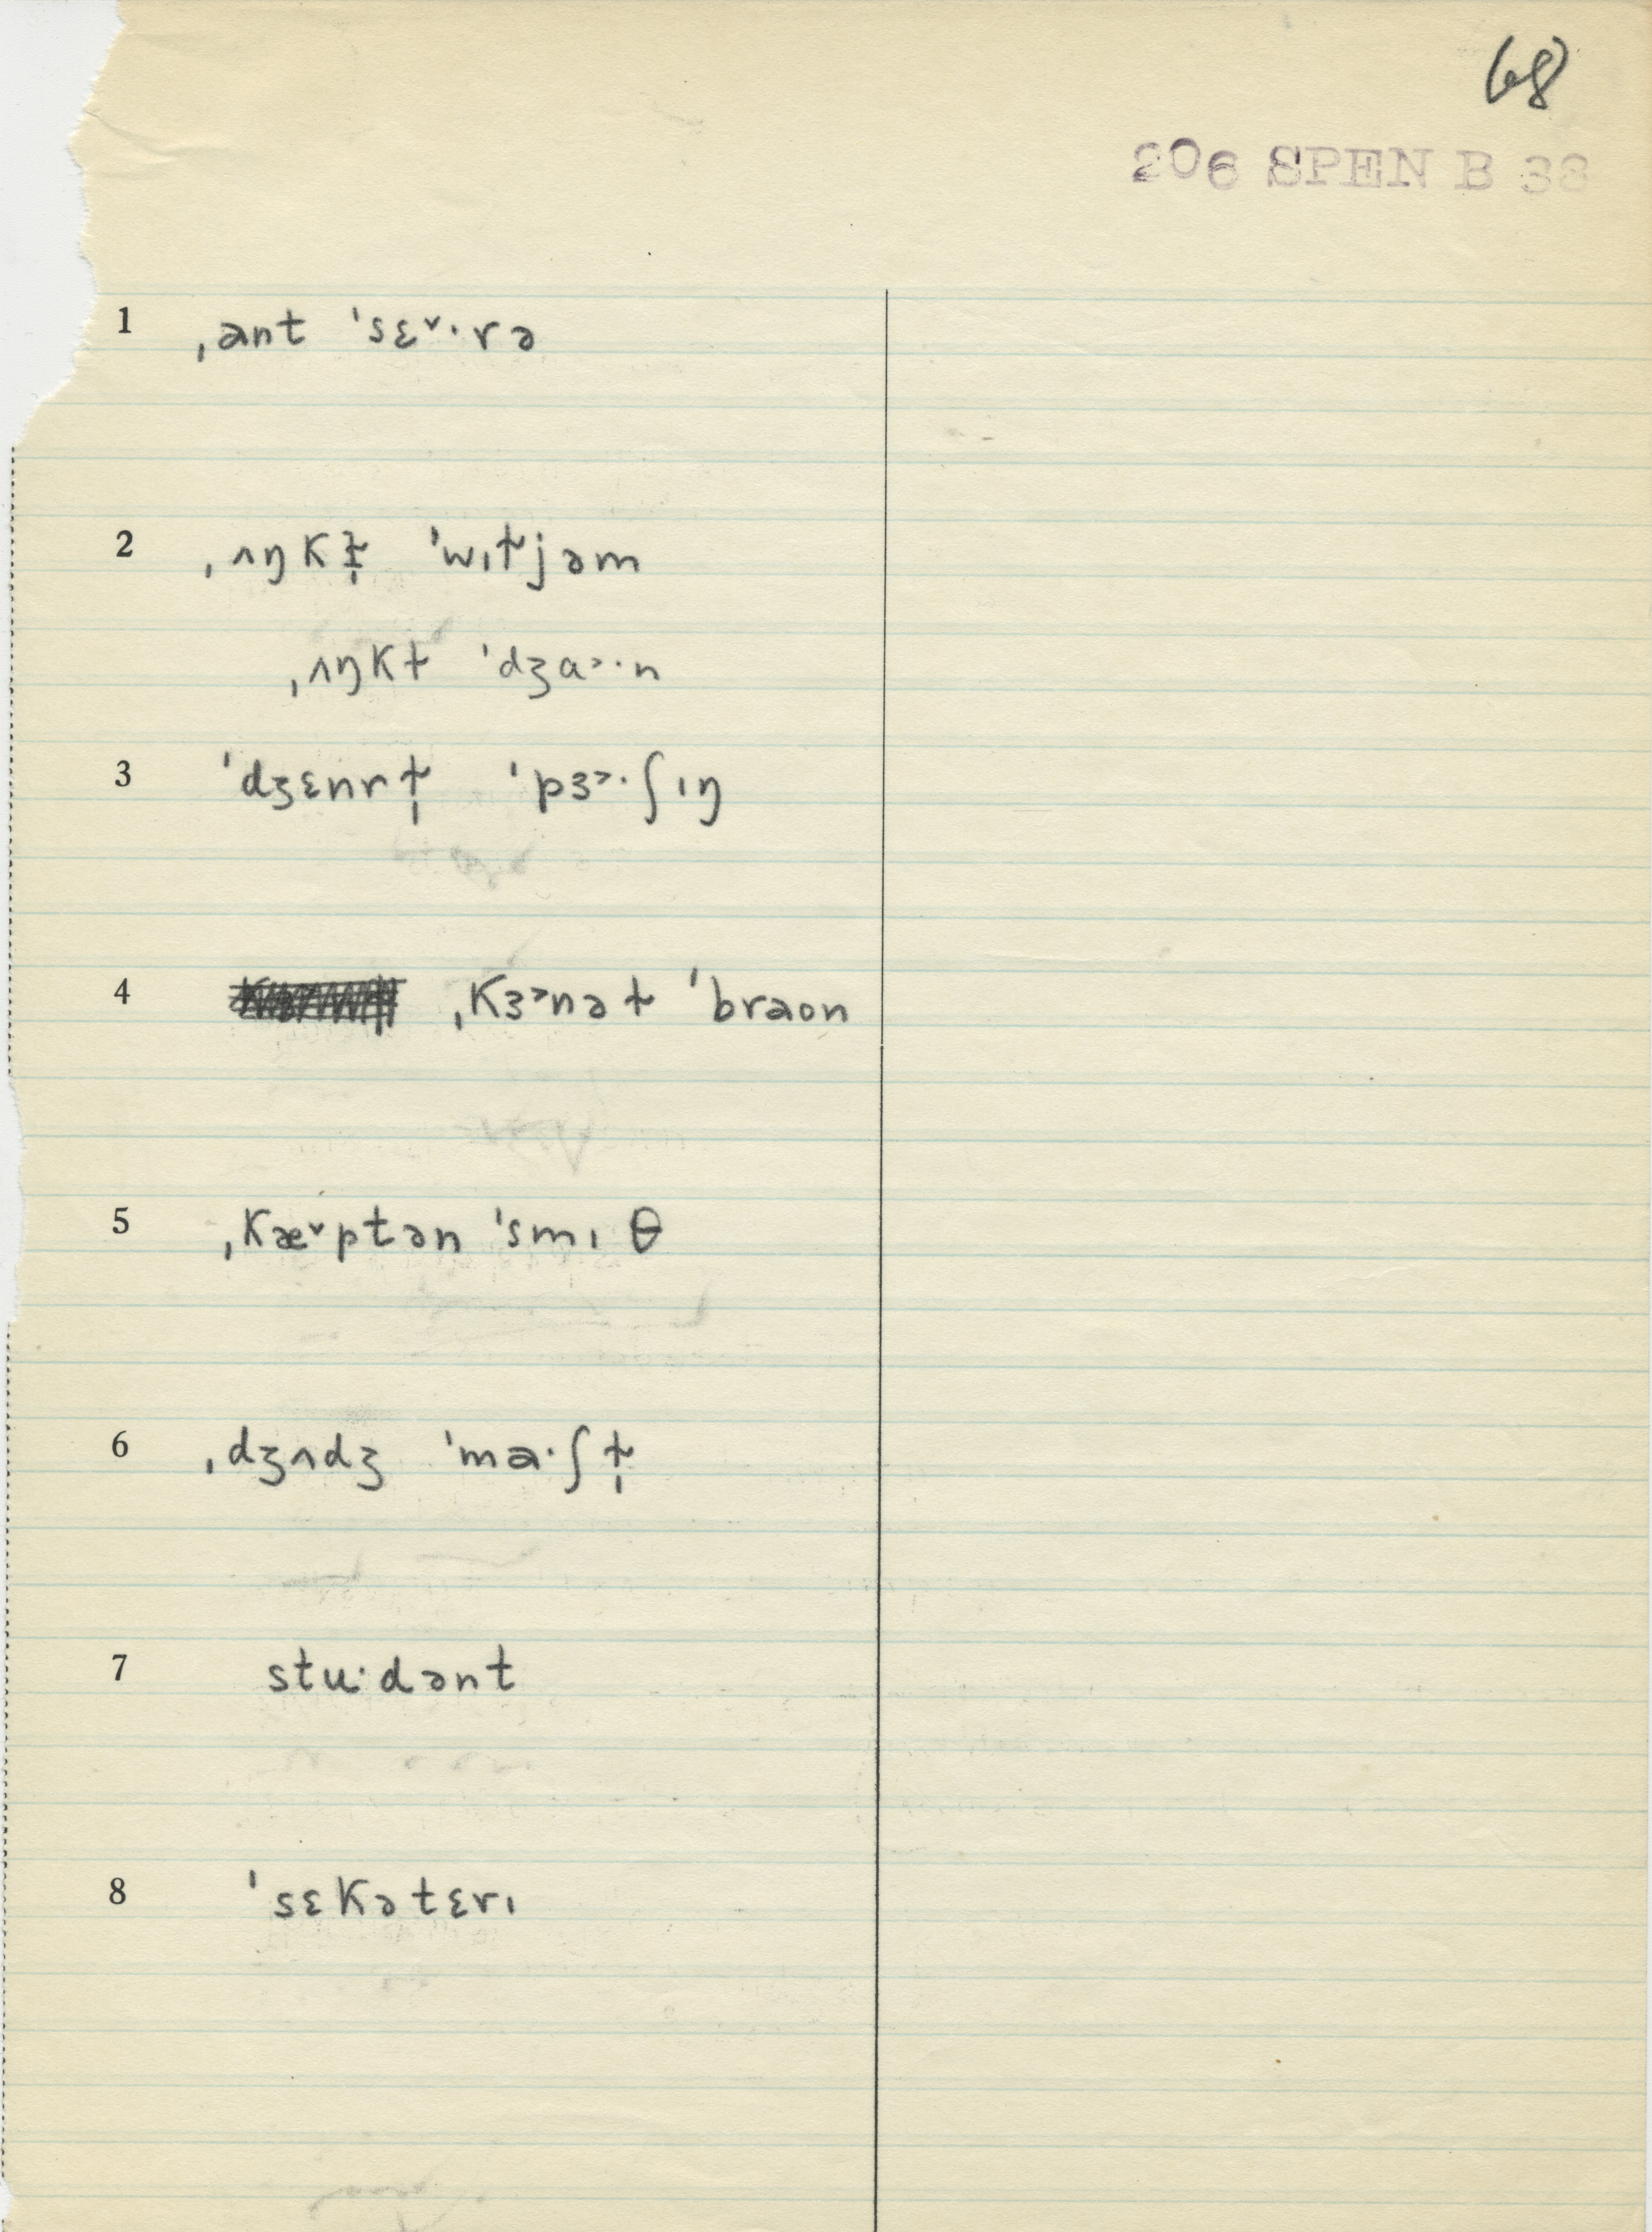 68
206 SPEN B 38
1 ˌant ˈsɛ˅·rə
2 ˌʌŋkɫ̩ ˈwɪɫjəm
ˌʌŋkɫ ˈdʒɑ˃·n
3 ˈdʒɛnrɫ̩ ˈpɜ˃·ʃɪŋ
4 ˌkɜ˃nəɫ ˈbraon
5 ˌkæ˅ptən ˈsmɪθ
6 ˌdʒʌdʒ ˈma·ʃɫ̩
7 stu·dənt
8 ˈsɛkətɛrɪ